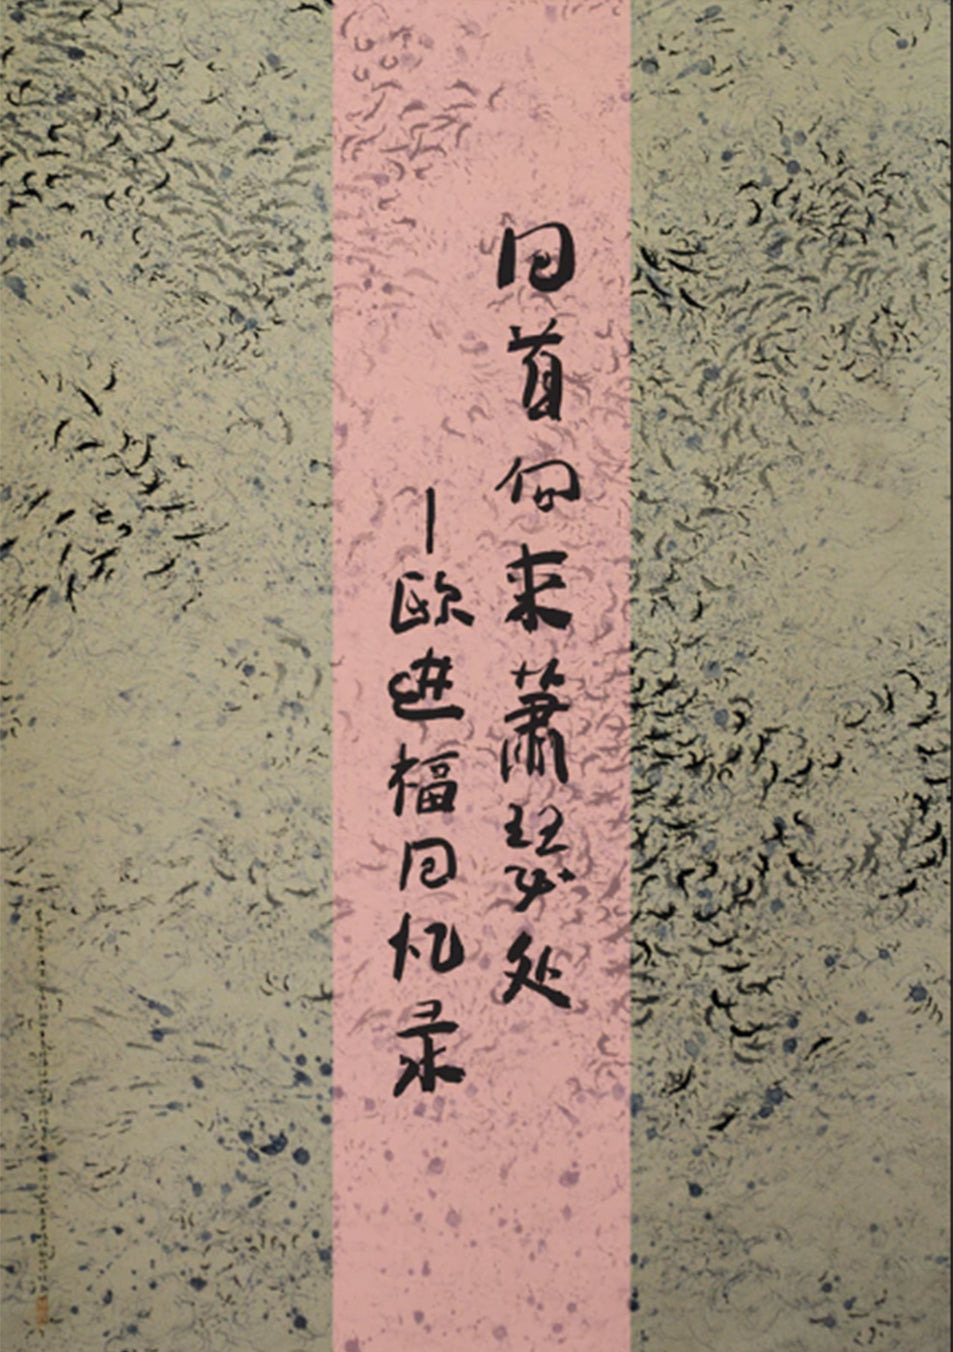 回首向来萧瑟处
—欧进福回忆录